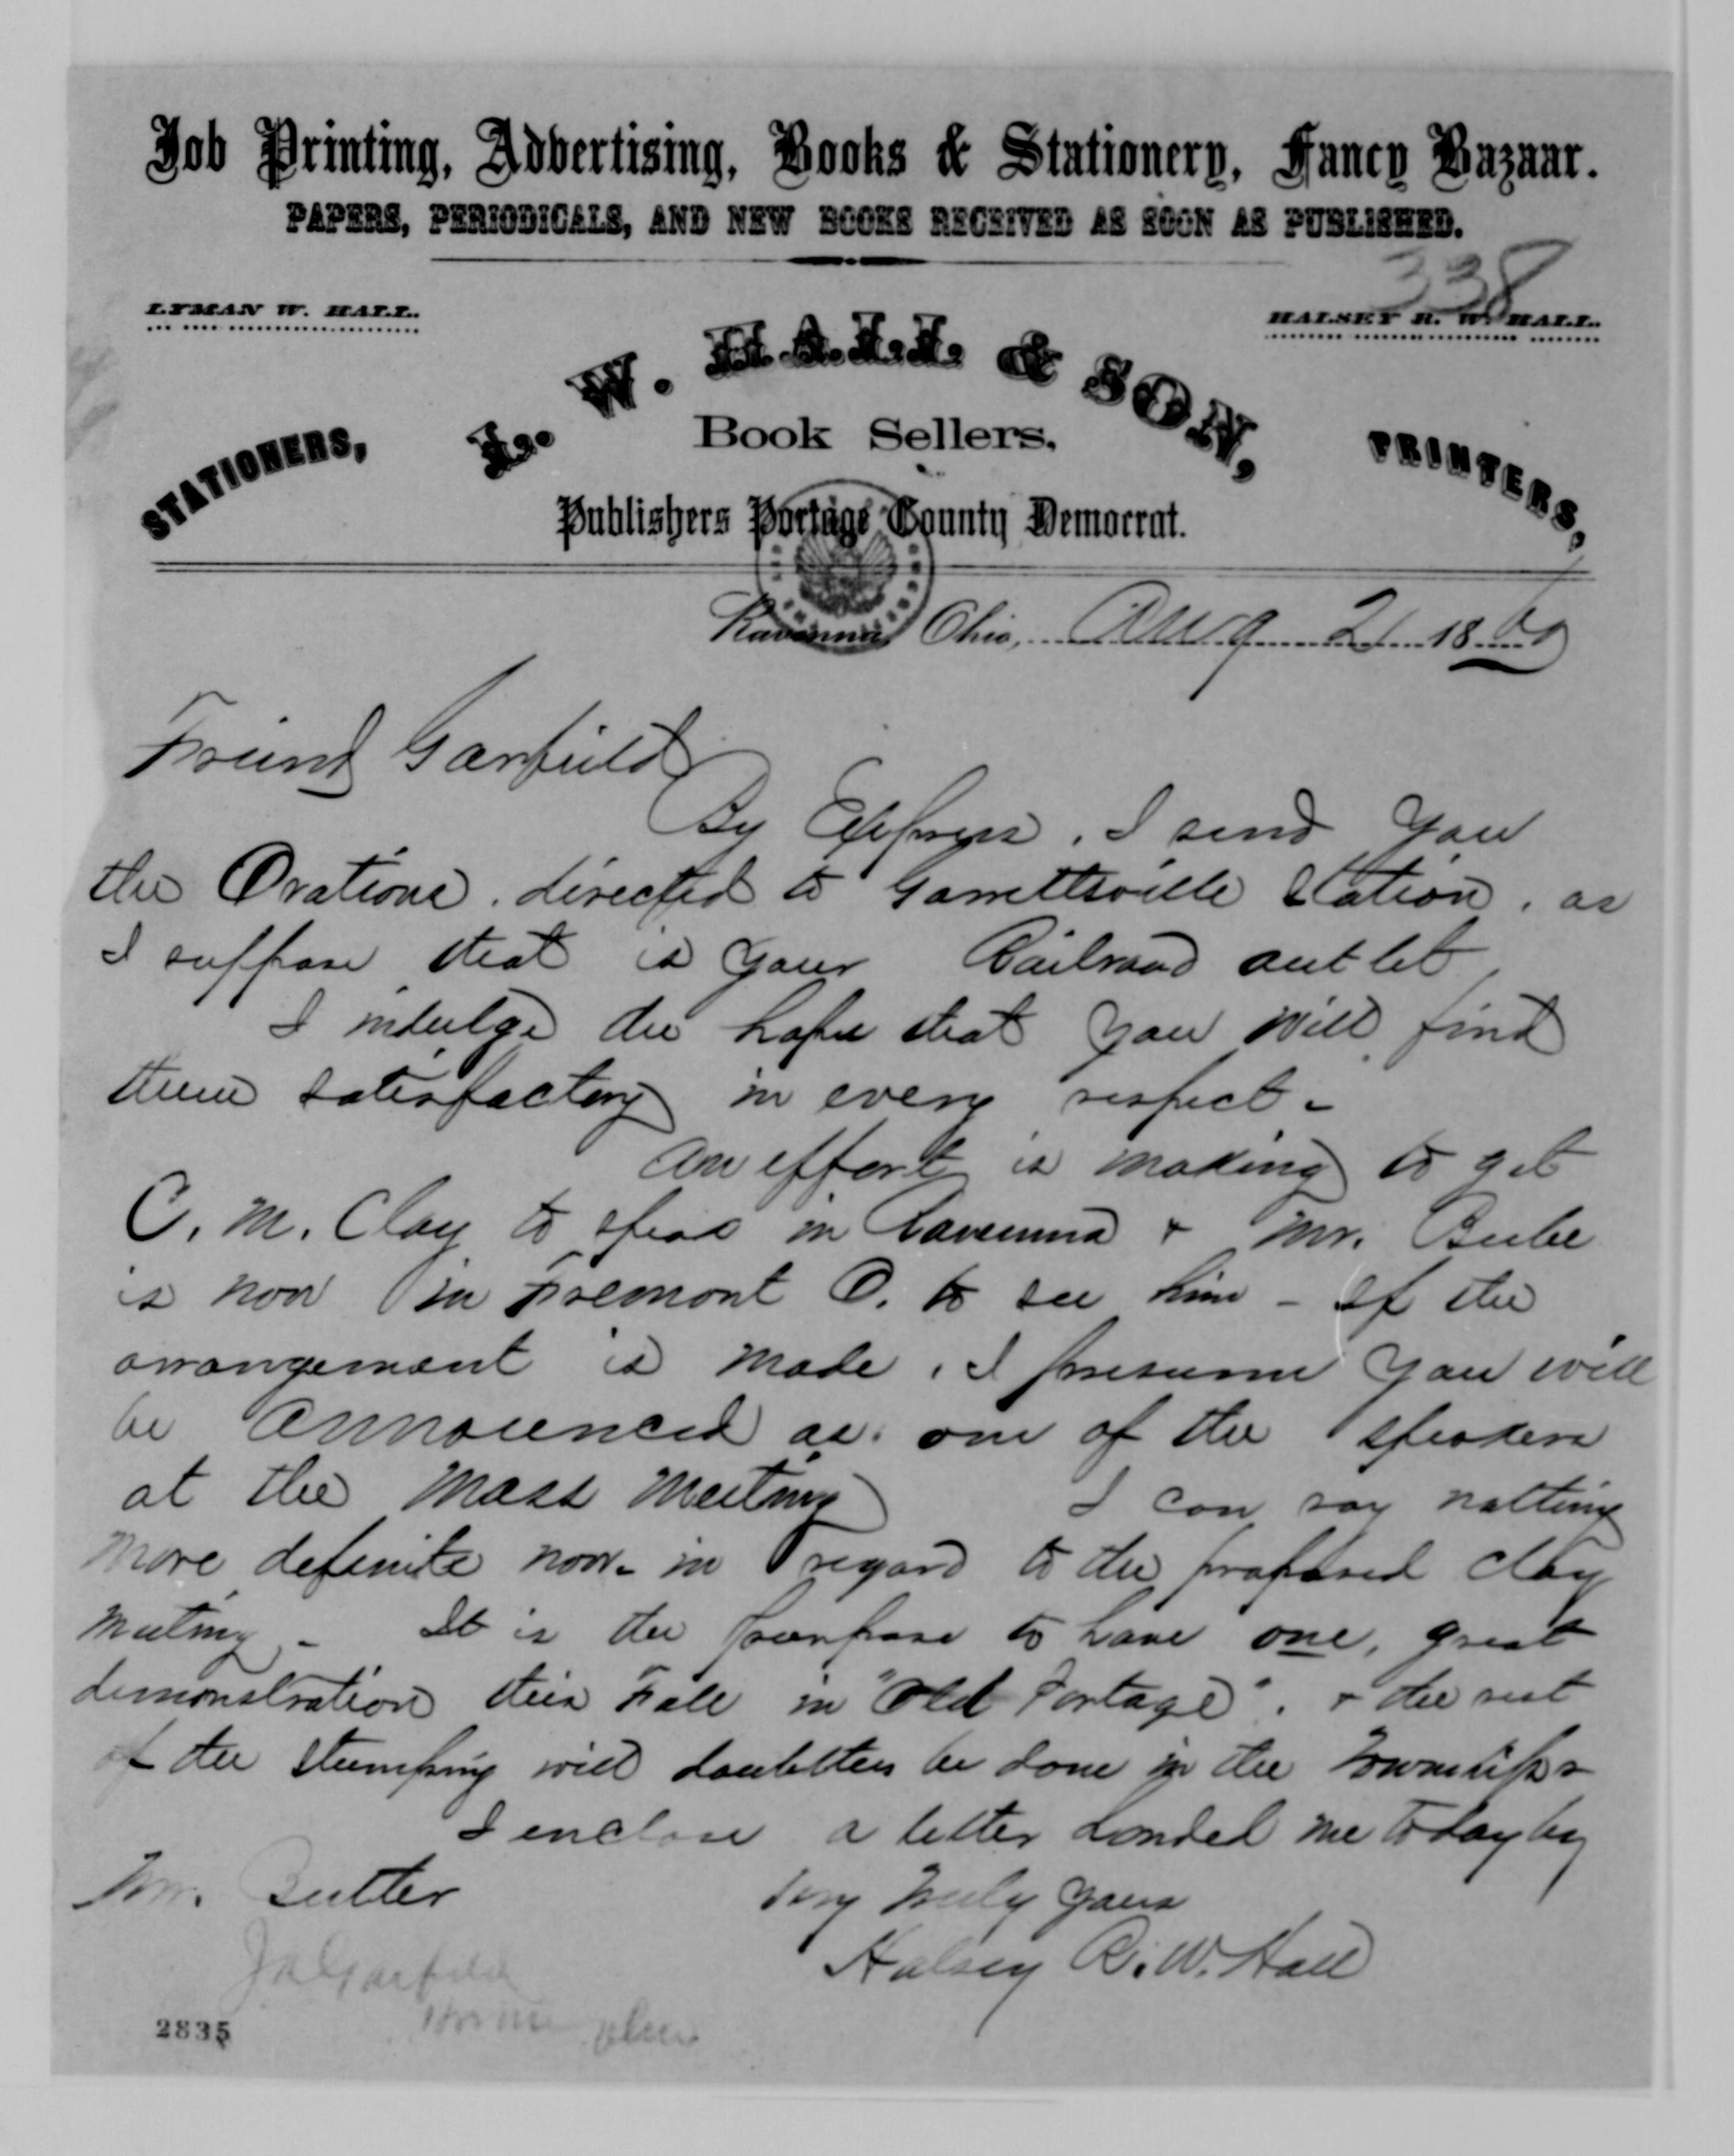 338
Job Printing, Advertising, Books & Stationery, Fancy Bazaar.
PAPERS, PERIODICALS, AND NEW BOOKS RECEIVED AS SOON AS PUBLISHED.
LYMAN W. HALL. HALSEY R. W. HALL.
L. W. HALL & SON,
STATIONERS, Book Sellers, PRINTERS,
Publishers Portage County Democrat.
Ravenna, Ohio, Aug 21 1860
Friend Garfield
By Express, I send you
the Orations, directed to Garrettsville Station, as
I suppose that is your Railroad outlet
I indulge the hope that you will find
them satisfactory in every respect -
An effort is making to get
C. M. Clay to speak in Ravenna & Mr. Beebe
is now in Fremont O. to see him - If the
arrangement is made, I presume you will
be announced as one of the speakers
at the Mass Meeting I can say nothing
more definite now - in regard to the proposed Clay
meeting - It is the purpose to have one, great
demonstration this Fall in "Old Portage". & the rest
of the stumping will doubtless be done in the Townships
I enclose a letter handed me today by
Mr. Butler Very Truly Yours
Halsey R. W. Hall
J A Garfield
2835